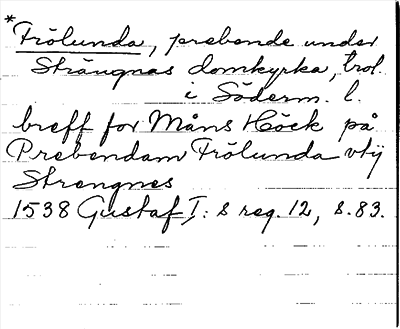 *
Frölunda, prebende under
Strängnäs domkyrka, trol.
i Söderm. l.
breff for Måns Höck på
Prebendam Frölunda vtij
Strengnes
1538 Gustaf I: s reg. 12, s. 83.